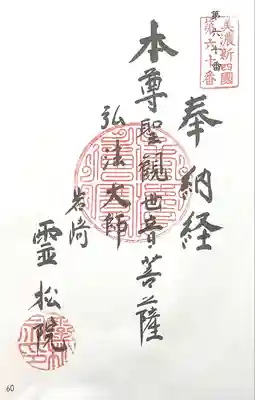 美濃新四國
第六十番
第六十番
奉納経
本尊聖観世音菩薩
弘法大師
岩崎
霊松院
60